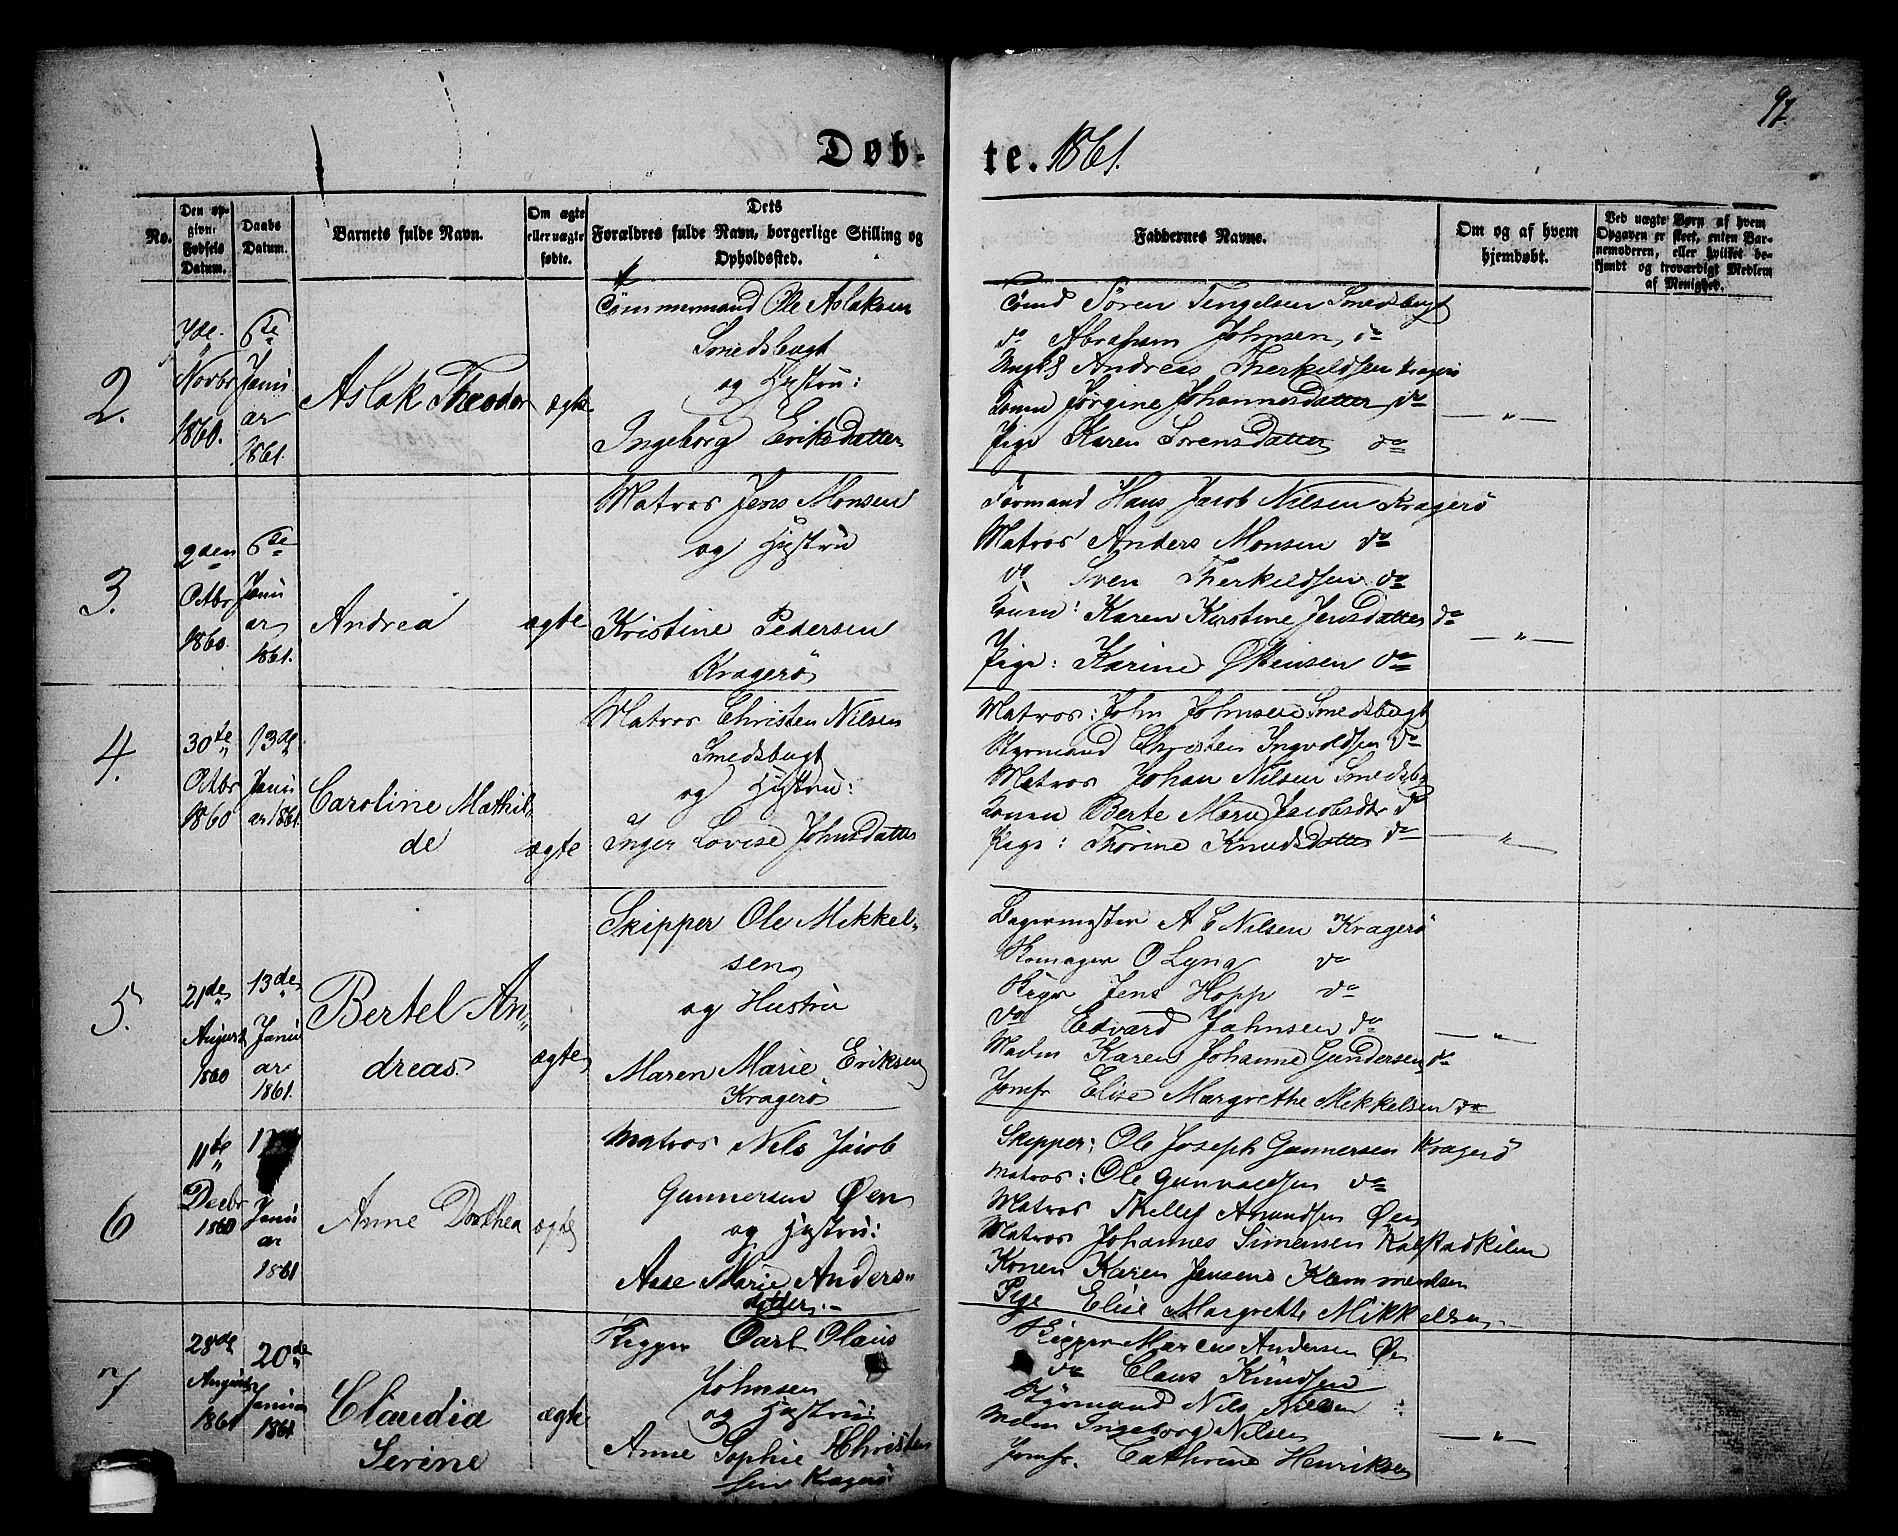 97.
Døb-te. 1861.
No.
Den opgivne Fødsels Datum.
Daabs Datum.
Barnets fulde Navn.
Om ægte eller uægte fødte.
Dets Forældres fulde Navn, borgerlige Stilling og Opholdssted.
Faddernes Navne.
Om og af hvem hjemdøbt.
Ved uægte Børn af hvem Opgaven er skeet, enten Barnemoderen, eller hvilket bekjendt og troværdigt Medlem af Menighed.
2.
7de Novbr 1860.
6te Januar 1861.
Aslak Theodor
ægte
Tømmermand Ole Aslaksen
Smedsbugt
og Hustru:
Ingeborg Eriksdatter
Tømd Søren Tengelsen Smedsbugt
do Abraham Johnsen, do
Ungk Andreas Therkildsen Kragerø
Konen Jørgine Johannesdatter do
Pige Karen Sørensdatter do
— " —
3.
9den Octbr 1860.
6te Januar 1861.
Andrea
ægte
Matros Jens Monsen
og Hustru
Kristine Pedersen
Kragerø
Formand Hans Jacob Nilsen Kragerø
Matros Anders Monsen do
do Sven Therkildsen do
Konen: Karen Kirstine Jensdatter do
Pige: Karine Østensen do
— " —
4.
30te Octbr 1860
13de Januar 1861.
Caroline Mathil-
de
ægte
Matros Christen Nilsen
Smedsbugt
og Hustru:
Inger Lovise Johnsdatter
Matros: John Johnsen Smedsbugt
Styrmand Christen Ingvoldsen do
Matros Johan Nilsen Smedsb
Konen Berte Marie Jacobsdtr do
Pige: Thorine Knudsdatter do
— " —
5.
21de August 1860
13de Januar 1861.
Bertel An-
dreas.
ægte
Skipper Ole Mikkel-
sen
og Hustru
Maren Marie Eriksen
Kragerø
Bagermester A C Nilsen Kragerø
Skomager O Lyng do
Jens Hopp do
do Edvard Jahnsen do
Madm Karen Johanne Gundersen do
Jomfr Elise Margrethe Mikkelsen do
— " —
6
11te Decbr 1860
Januar 1861
Anne Dorthea
ægte
Matros Nils Jacob
Gunnersen Øen
og Hustru:
Anne Marie Anders-
datter.-
Skipper: Ole Joseph Gunnersen Kragerø
Matros: Ole Gunvaldsen do
Matros Kellef Anundsen Øen
Matros Johannes Simensen Kalstadkilen
Konen Karen Jensens Kammendsen
Pige Elise Margrette Mikkelsen
7
28de August 1860
20de Januar 1861
Claudia
Serine
ægte
Skipper Carl Olaus
Johnsen
og Hustru:
Anne Sophie Christen
sen Kragerø
Skipper Marcus Andersen Øen
do Claus Knudsen
Styrmand Nils Nielsen
Mdm Ingeborg Nilsen
Jomfr. Cathrine Henriksen
— " —